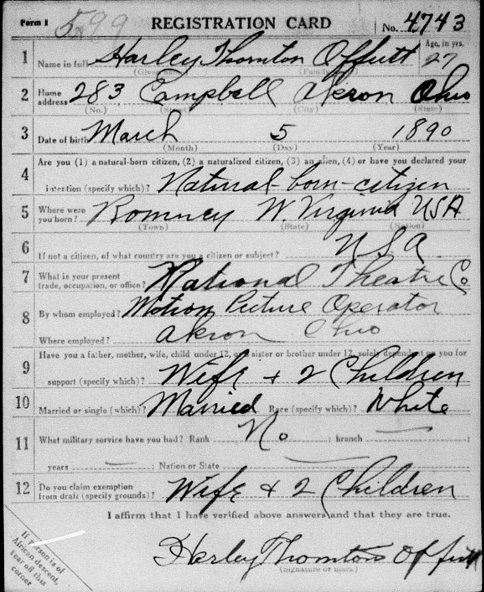 Form 1 599 REGISTRATION CARD No. 4743
1 Name in full Harley Thornton Offutt Age, in yrs. 27
(Given name) (Family name)
2 Home address 283 Campbell Akron Ohio
(No.) (Street) (City) (State)
3 Date of birth March 5 1890
(Month) (Day) (Year)
4 Are you (1) a natural-born citizen, (2) a naturalized citizen, (3) an alien, (4) or have you declared your
intention (specify which)? Natural-born-citizen
5 Where were you born? Romney W. Virginia USA
(Town) (State) (Nation)
6 If not a citizen, of what country are you a citizen or subject? USA
7 What is your present trade, occupation, or office? National Theatre Co
8 By whom employed? Motion Picture Operator
Where employed? Akron Ohio
9 Have you a father, mother, wife, child under 12, or a sister or brother under 12, solely dependent on you for
support (specify which)? Wife + 2 Children
10 Married or single (which)? Married Race (specify which)? White
11 What military service have you had? Rank No ; branch —
years — ; Nation or State —
12 Do you claim exemption from draft (specify grounds)? Wife + 2 Children
I affirm that I have verified above answers and that they are true.
Harley Thornton Offutt
(Signature or mark)
If person is of
African descent,
tear off this
corner